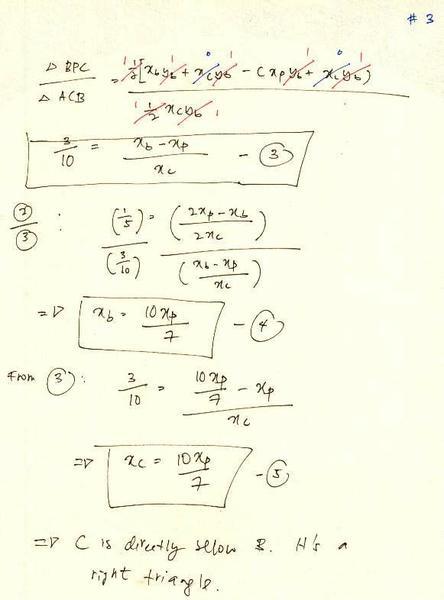 # 3
△ BPC / △ ACB = ½[x_b y_b + x_c y_b - (x_p y_b + x_c y_b) / ½ x_c y_b
3/10 = (x_b - x_p) / x_c - ③
②/③ : (1/5) / (3/10) = ((2x_p - x_b) / 2x_c) / ((x_b - x_p) / x_c)
=> x_b = 10x_p / 7 - ④
From ③ : 3/10 = (10x_p/7 - x_p) / x_c
=> x_c = 10x_p / 7 - ⑤
=> C is directly below B. It's a
right triangle.